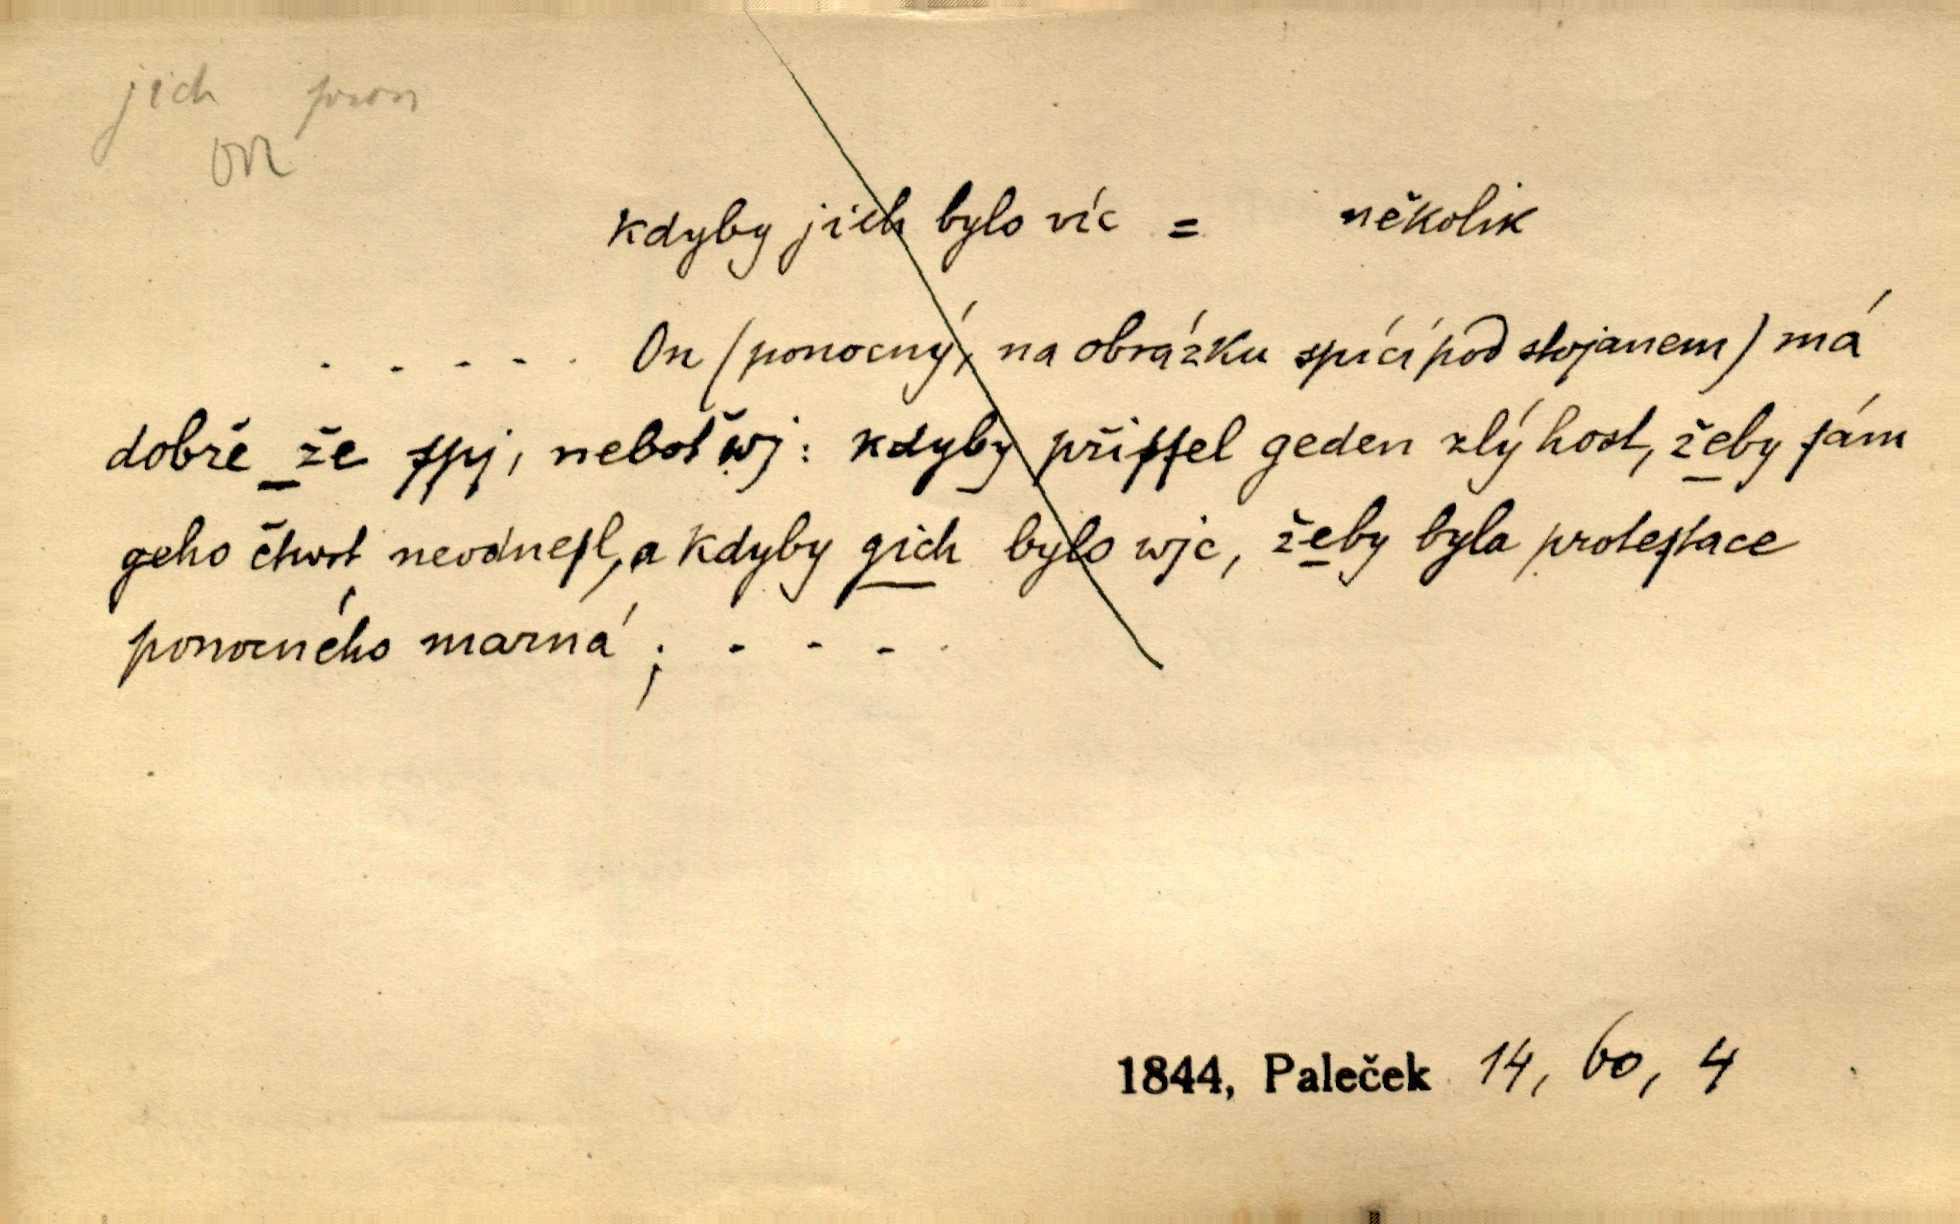 jich pron
on
kdyby jich bylo víc = několik
. . - - . On (ponocný, na obrázku spící pod stojanem) má
dobře že ſpj, neboť wj: kdyby přiſſel geden zlý host, žeby ſám
geho čtwrt neodneſl, a kdyby gich bylo wjc, žeby byla proteſtace
ponocného marná; - - - .
1844, Paleček 14, 60, 4